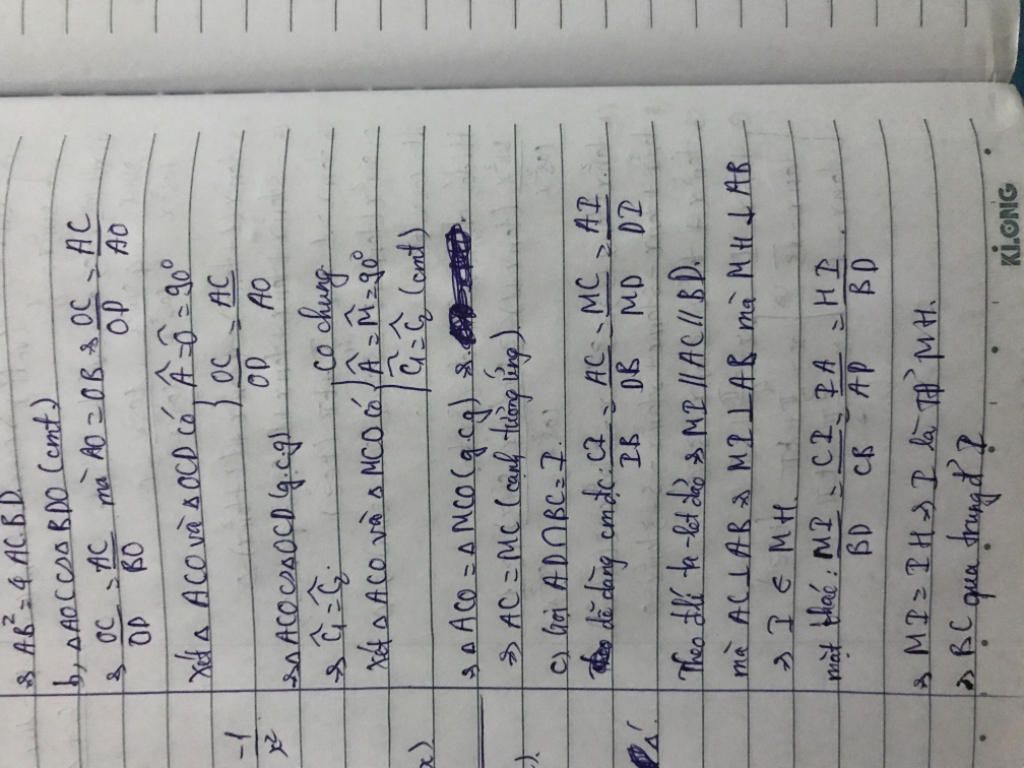 ⇒ AB² = 4 AC.BD
b, △AOC ∽ △BDO (cmt)
⇒ OC/OD = AC/BO mà AO = OB ⇒ OC/OD = AC/AO
Xét △ACO và △OCD có { Â = Ô = 90°
OC/OD = AC/AO
⇒ △ACO ∽ △OCD (g.c.g)
⇒ Ĉ₁ = Ĉ₂.
CO chung
Xét △ACO và △MCO có { Â = M̂ = 90°
Ĉ₁ = Ĉ₂ (cmt)
⇒ △ACO = △MCO (g.c.g)
⇒ AC = MC (cạnh tương ứng)
c) Gọi AD ∩ BC = I.
dễ dàng cm đc: CI/IB = AC/DB = MC/MD = AI/DI
Theo đlí ta-let đảo ⇒ MI // AC // BD.
mà AC ⊥ AB ⇒ MI ⊥ AB mà MH ⊥ AB
⇒ I ∈ MH.
mặt khác: MI/BD = CI/CB = IA/AD = HI/BD
⇒ MI = IH ⇒ I là TĐ MH.
⇒ BC qua trung đ' I
-1/x²
x)
KI.ONG